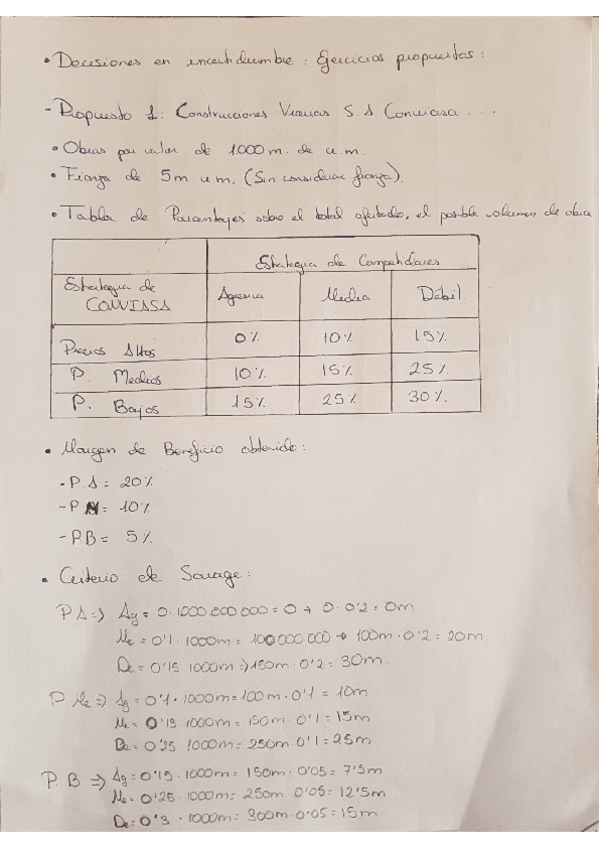 • Decisiones en incertidumbre: Ejercicios propuestos:
- Propuesto 1: Construcciones Viarias S.A. Conviasa ...
• Obras por valor de 1000 m. de u.m.
• Fianza de 5m u.m. (Sin considerar fianza).
• Tabla de Porcentajes sobre el total ofertado, el posible volumen de obra
Estrategia de Competidores
Estrategia de CONVIASA Agresiva Media Débil
Precios Altos 0% 10% 15%
P. Medios 10% 15% 25%
P. Bajos 15% 25% 30%
• Margen de Beneficio obtenido:
- P.A = 20%
- P M = 10%
- P.B = 5%
• Criterio de Savage:
P A => Ag = 0 · 1000.000.000 = 0 → 0 · 0'2 = 0m
Me = 0'1 · 1000m = 100000000 → 100m · 0'2 = 20m.
De = 0'15 1000m => 150m · 0'2 = 30m.
P Me => Ag = 0'1 · 1000m = 100m · 0'1 = 10m
Me = 0'15 1000m = 150m · 0'1 = 15m
De = 0'25 · 1000m = 250m · 0'1 = 25m
P. B => Ag = 0'15 · 1000m = 150m · 0'05 = 7'5m
Me = 0'25 · 1000m = 250m 0'05 = 12'5m
De = 0'3 · 1000m = 300m · 0'05 = 15m.